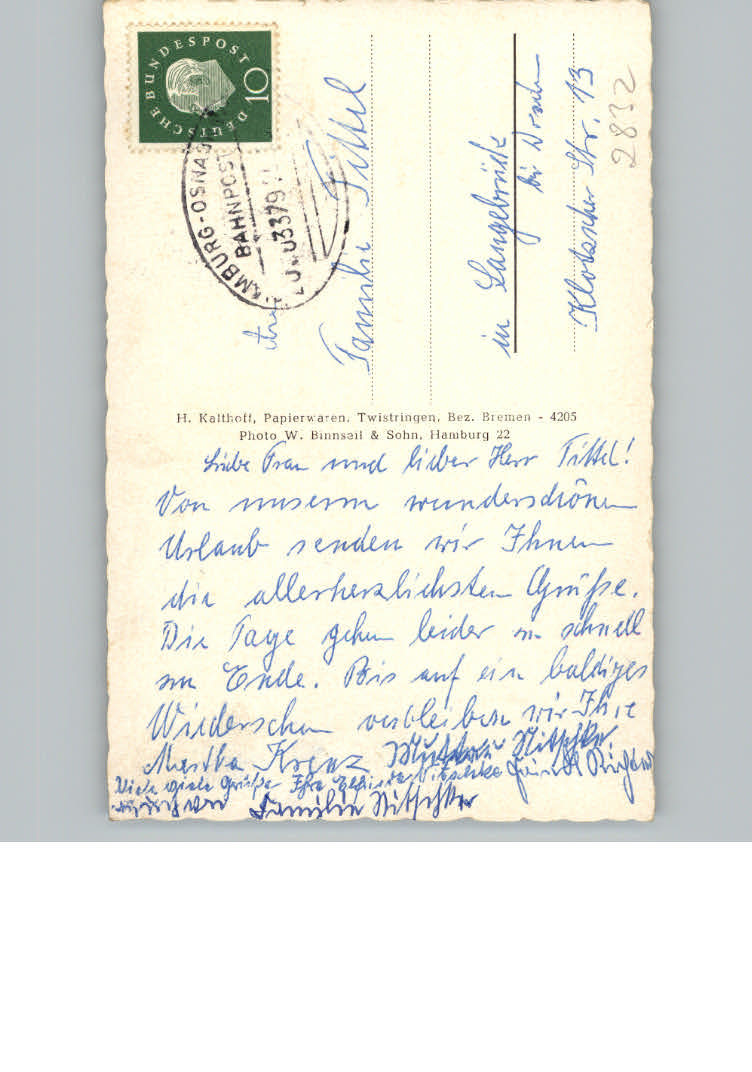 DEUTSCHE BUNDESPOST
10
MBURG-OSNA
BAHNPOST
ZUG U3379
Familie Tittel
in Langebrück
bei Dresden
Klotzscher Str. 13
2832
H. Kalthoff, Papierwaren, Twistringen, Bez. Bremen - 4205
Photo W. Binnseil & Sohn, Hamburg 22
Liebe Frau und lieber Herr Tittel!
Von unserm wunderschönen
Urlaub senden wir Ihnen
die allerherzlichsten Grüße.
Die Tage gehen leider so schnell
zu Ende. Bis auf ein baldiges
Wiedersehen verbleiben wir Ihre
Martha Krenz Nitschke
Viele viele Grüße Ihre
Familie Nitschke